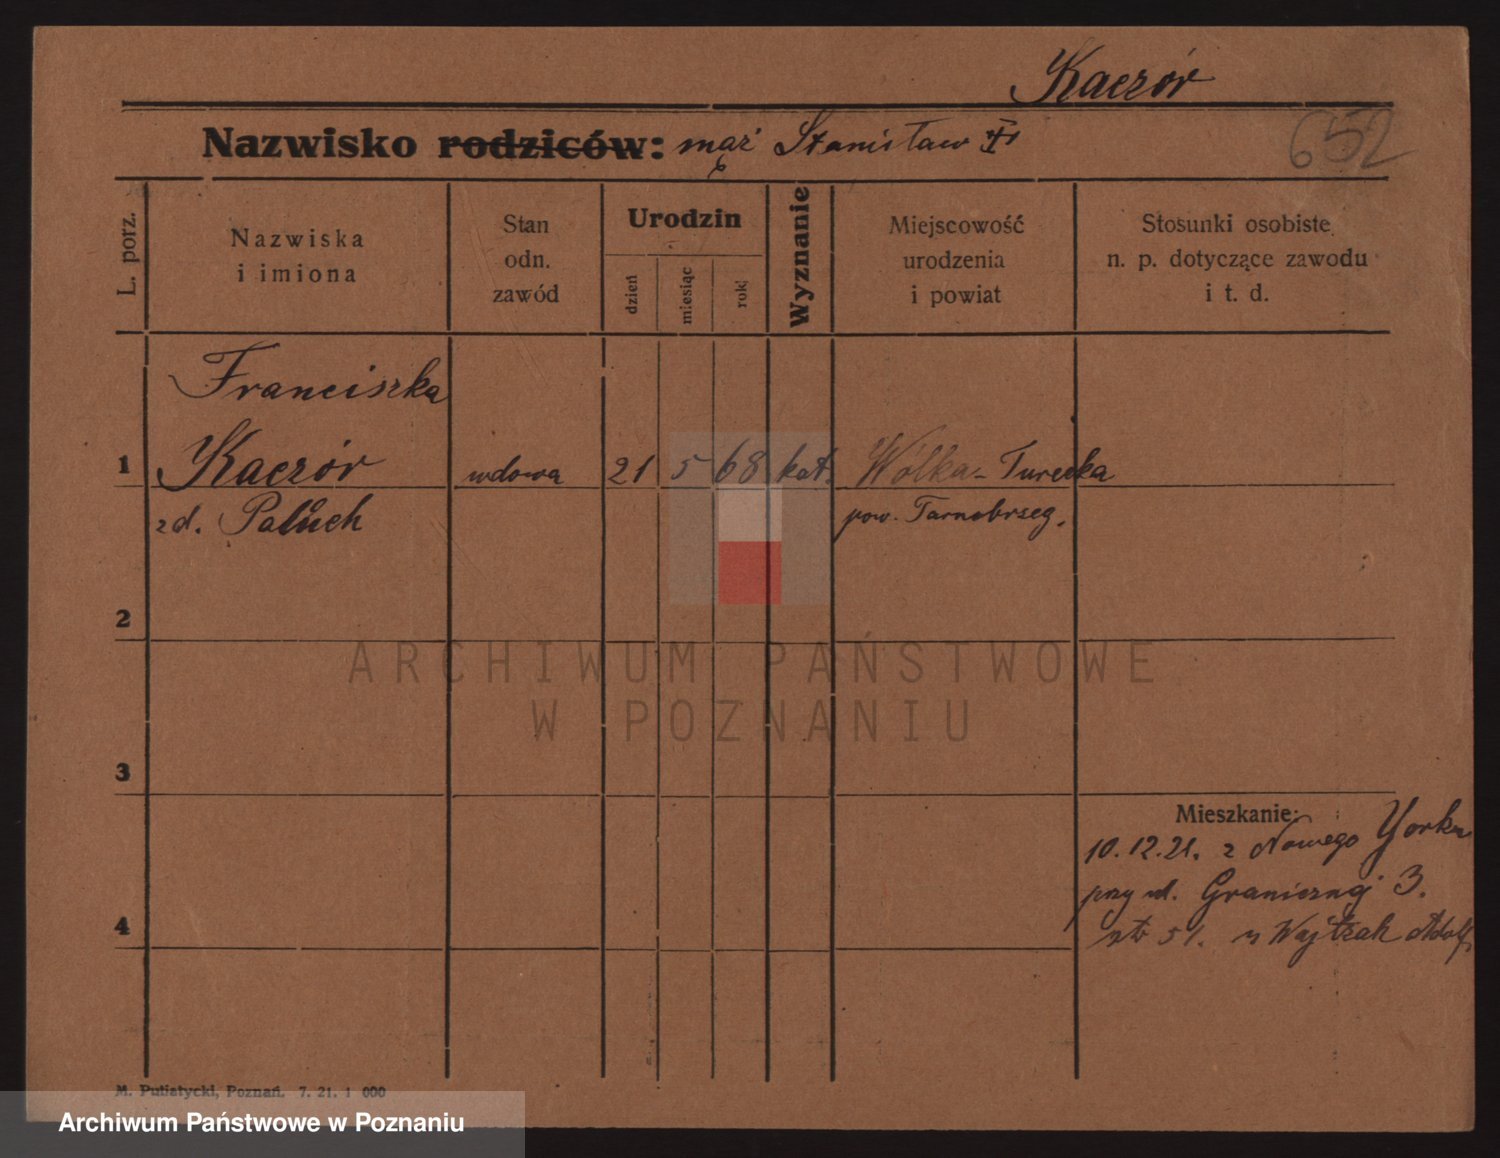 Kaczór
Nazwisko rodziców: mąż Stanisław
652
L. porz.
Nazwiska
i imiona
Stan
odn.
zawód
Urodzin
dzień
miesiąc
rok
Wyznanie
Miejscowość
urodzenia
i powiat
Stosunki osobiste
n. p. dotyczące zawodu
i t. d.
Franciszka
1 Kaczór wdowa 21 5 68 kat. Wólka-Turecka
zd. Paluch pow. Tarnobrzeg.
2
ARCHIWUM PAŃSTWOWE
W POZNANIU
3
Mieszkanie:
10.12.21. z Nowego Yorku
przy ul. Granicznej 3.
4
51. u Wojtzak Adolf
M. Putiatycki, Poznań. 7. 21. 1 000
Archiwum Państwowe w Poznaniu